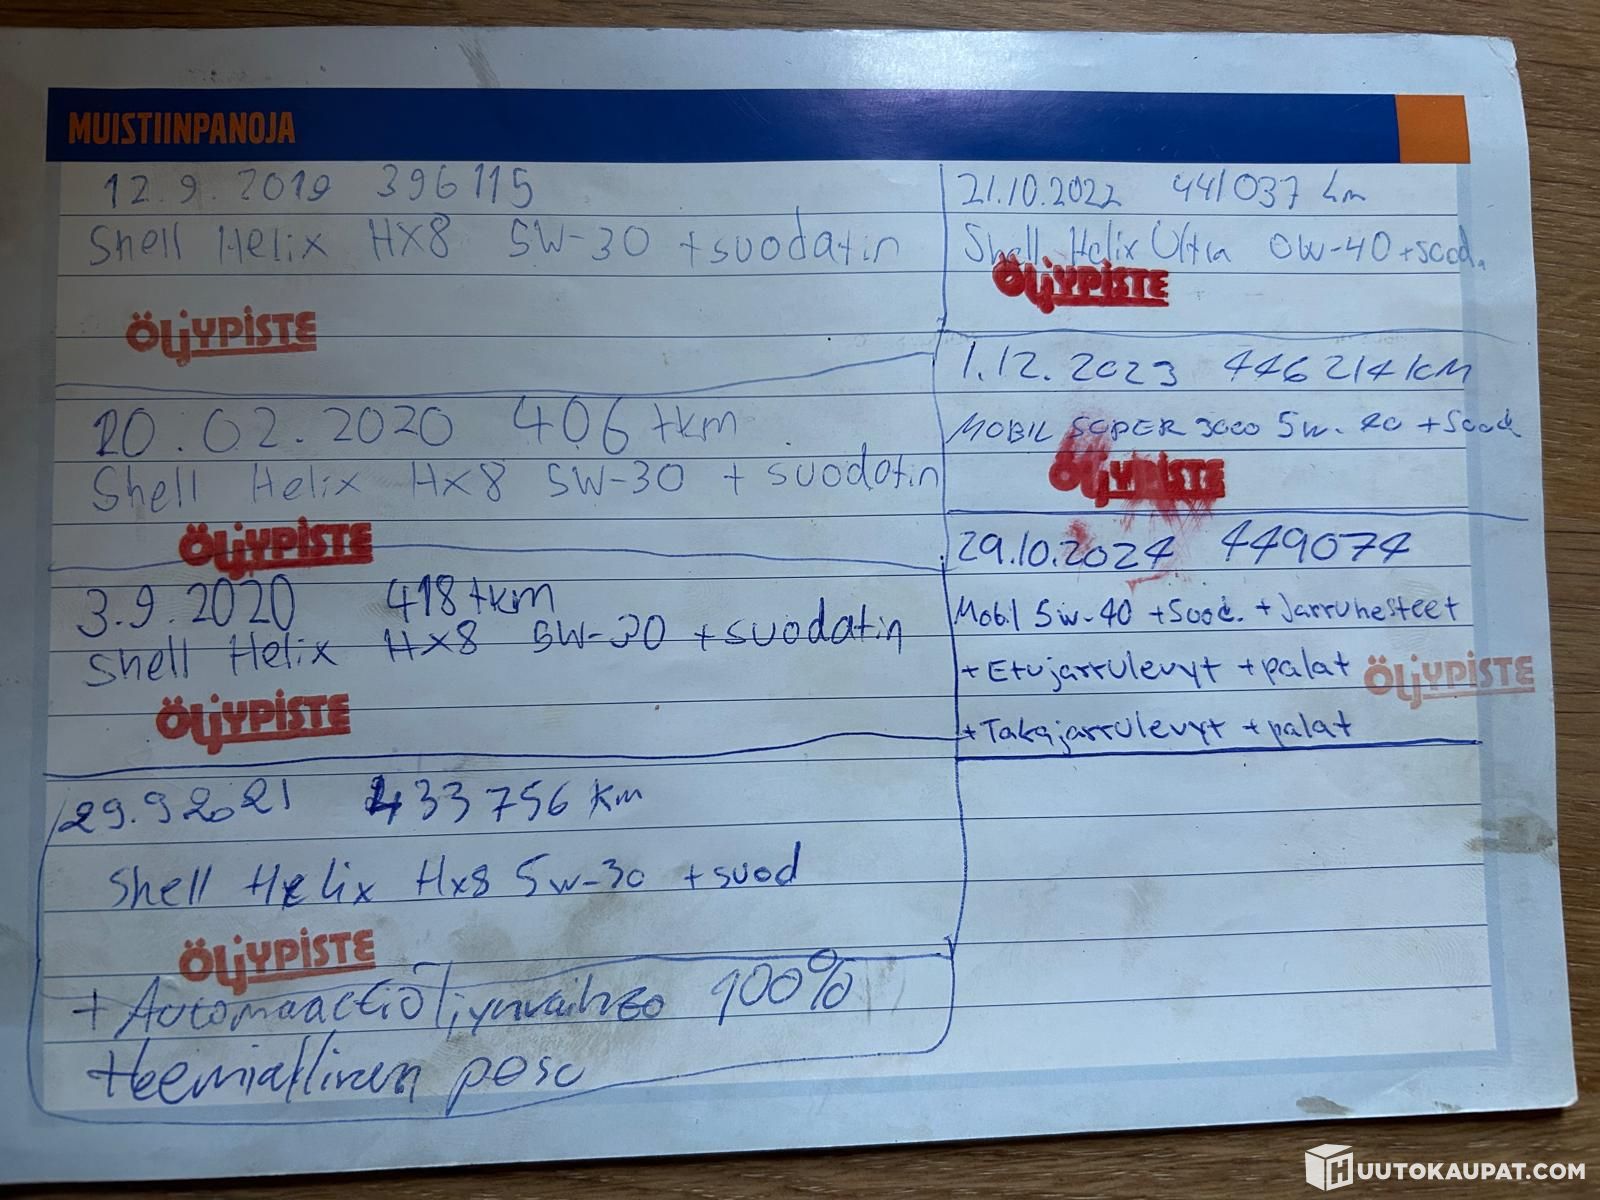 MUISTIINPANOJA
12.9.2019 396115
Shell Helix HX8 5W-30 +suodatin
ÖLJYPISTE
20.02.2020 406 tkm
Shell Helix HX8 5W-30 + suodatin
ÖLJYPISTE
3.9.2020 418 tkm
Shell Helix HX8 5W-30 +suodatin
ÖLJYPISTE
29.9.2021 433756 km
Shell Helix Hx8 5w-30 +suod
ÖLJYPISTE
+ Automaattiöljynvaihto 100%
+kemiallinen pesu
21.10.2022 441037 km
Shell Helix Ultra 0W-40 +suod.
ÖLJYPISTE
1.12.2023 446214 KM
MOBIL SUPER 3000 5w-40 + Suod
ÖLJYPISTE
29.10.2024 449074
Mobil 5w-40 +Suod. +Jarrunesteet
+ Etujarrulevyt + palat
ÖLJYPISTE
+Takajarrulevyt + palat
HUUTOKAUPAT.COM